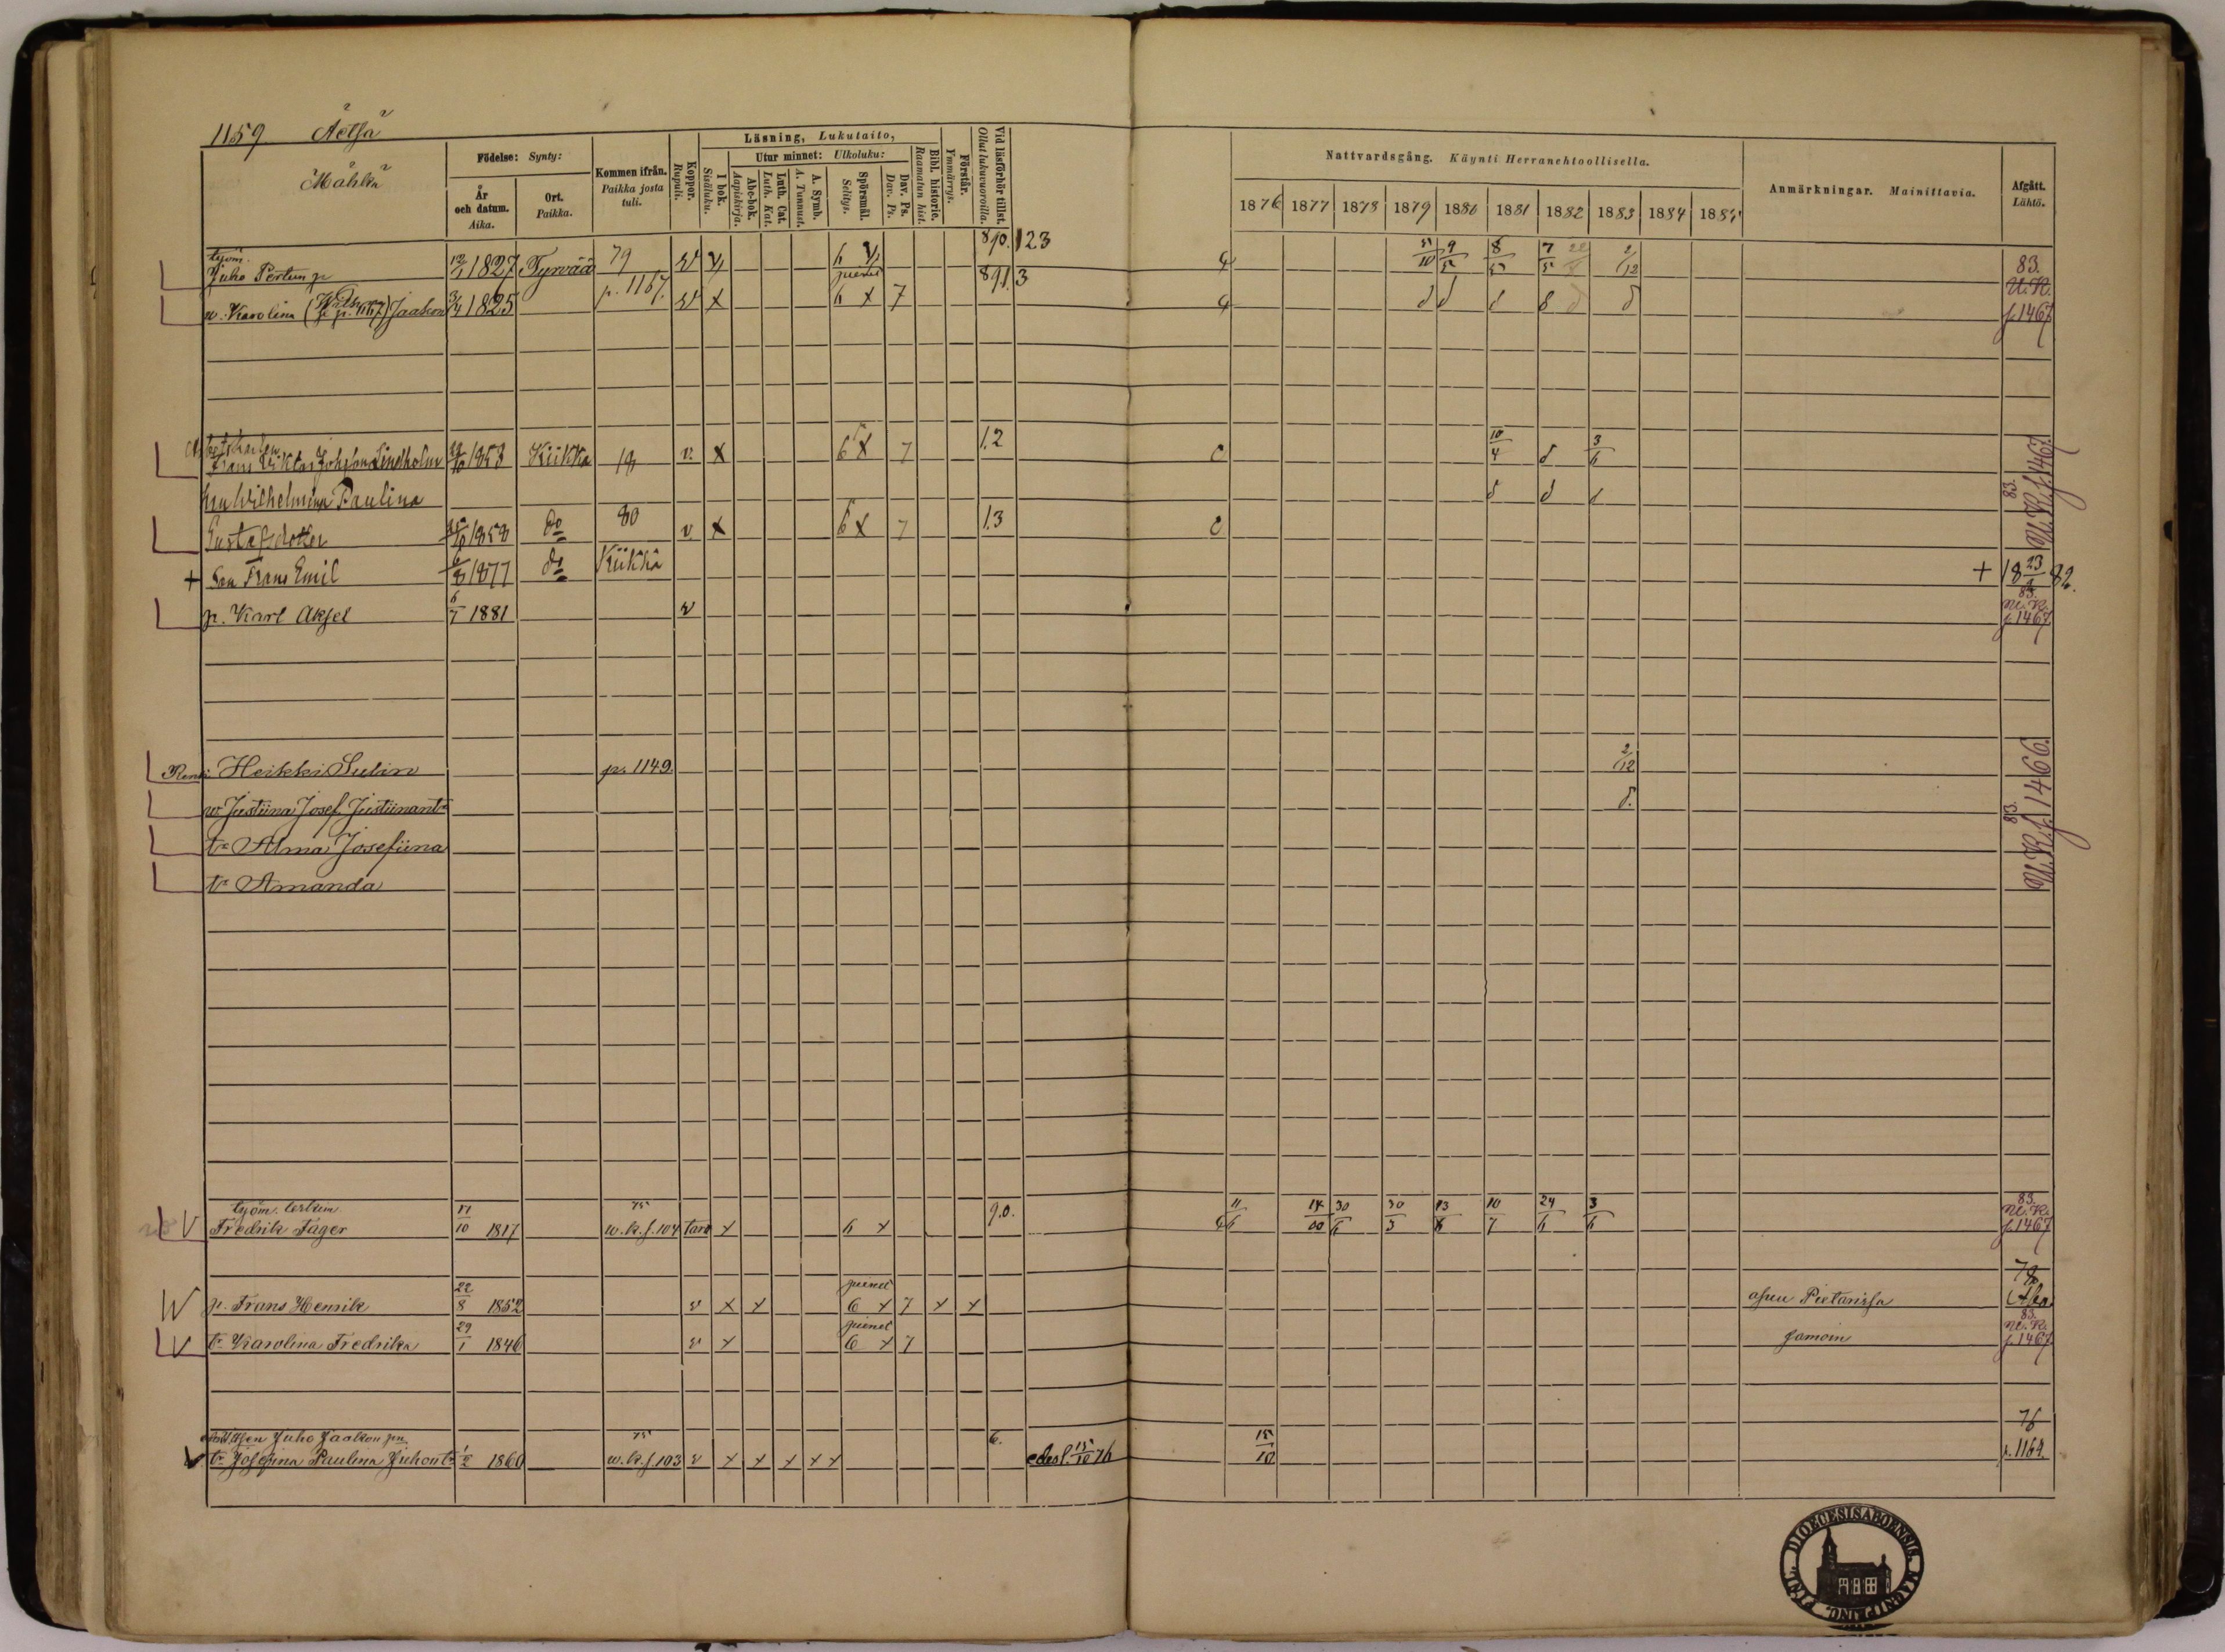 1159. Äetsä
Mähkä
Födelse: Synty:
År och datum. Aika.
Ort. Paikka.
Kommen ifrån. Paikka josta tuli.
Koppor. Rupuli.
Läsning, Lukutaito,
I bok. Sisäluku.
Utur minnet: Ulkoluku:
Abc-bok. Aapiskirja.
Luth. Cat. Luth. Kat.
A. Symb. A. Tunnust.
Spörsmål. Selitys.
Dav. Ps. Dav. Ps.
Bibl. historie. Raamatun hist.
Förstår. Ymmärrys.
Vid läsförhör tillst. Ollut lukuvuoroilla.
Nattvardsgång. Käynti Herranehtoollisella.
1876 1877 1878 1879 1880 1881 1882 1883 1884 1885
Anmärkningar. Mainittavia.
Afgått. Lähtö.
työm.
Juho Pertun p 12/1 1827 Tyrvää 79 v 6 890. 123 9/5 8/5 7/5 2/12 83.
p. 1167. pienet 891. 3
w. Karolina Jaakon 3/4 1825 v x 6 x 7 p. 1467
Frans Viktor Johansson Lindholm 1853 Kiikka v. x 6 x 7 1.2 10/4 3/6
hu Wilhelmina Paulina
Gustafsdotter 1858 do 80 v x 6 x 7 1.3 83. p. 1467.
+ Son Frans Emil 1877 do Kiikka + 18 23 82.
p. Karl Aksel 6/7 1881 v 83. p. 1467
Renki Heikki Sulin p. 1149. 2/12
w. Justiina Josef. Justiinant.
tr Alma Josefiina 83. p. 1466.
tr Amanda
työm. leskim. 75 9.0. 83.
Fredrik Fager 11/10 1817 w.k.s. 104 tarv x 6 x 11/6 14/10 30/6 30/3 13/6 10/7 24/6 3/6 p. 1467
pienet 78
p. Frans Henrik 22/8 1852 v x x 6 x 7 x x asuu Pietarissa
pienet 83.
tr Karolina Fredrika 29/1 1846 v x 6 x 7 samoin p. 1467
Juho Jaakon pn. 75 6. 76
tr Josefina Paulina Juhont. 1/2 1860 w.k.s. 103 v x x x x x edesl. 15/10 76 15/10 p. 1164.
SIGILL. DIOECESIS ABOENSIS. MAGNI PRINC. FINL.